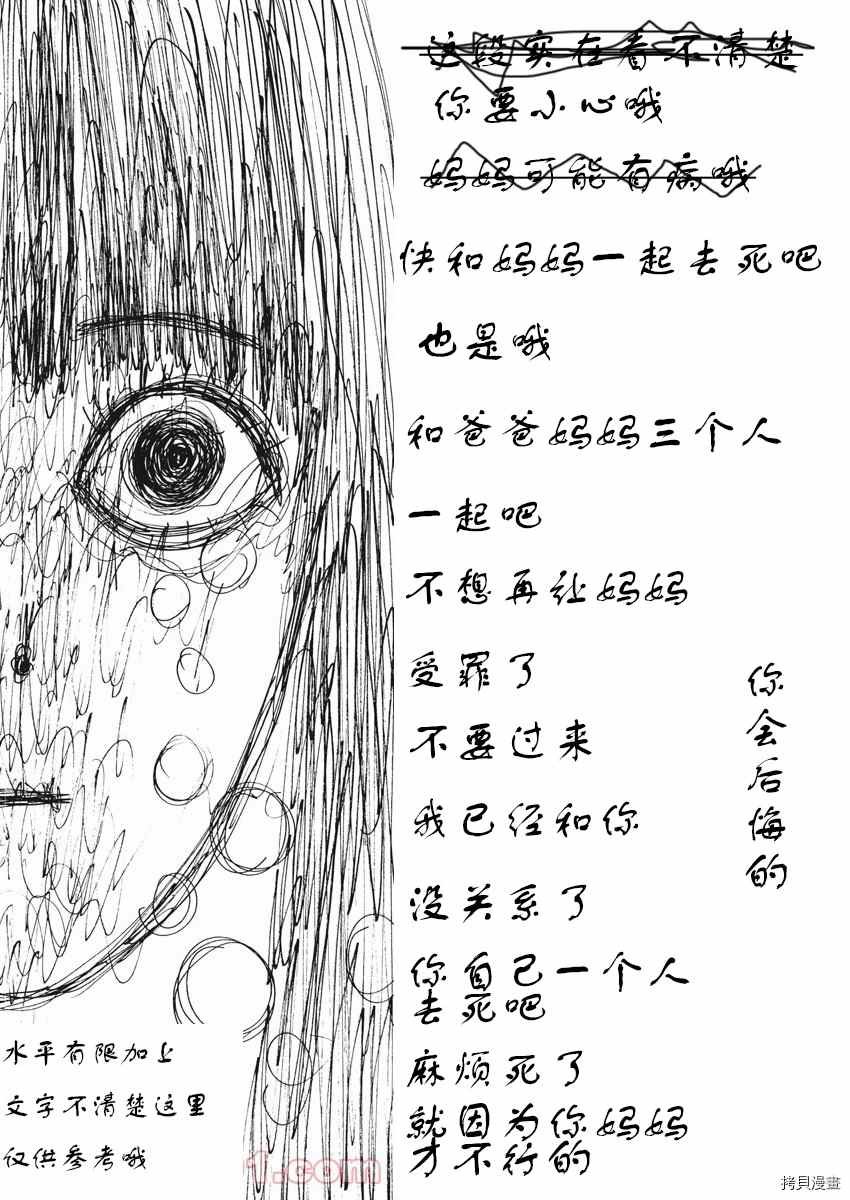 这段实在看不清楚
你要小心哦
妈妈可能有病哦
快和妈妈一起去死吧
也是哦
和爸爸妈妈三个人
一起吧
不想再让妈妈
受罪了
不要过来
我已经和你
没关系了
你自己一个人
去死吧
麻烦死了
就因为你妈妈
才不行的
你会后悔的
水平有限加上
文字不清楚这里
仅供参考哦
1.com
拷貝漫畫